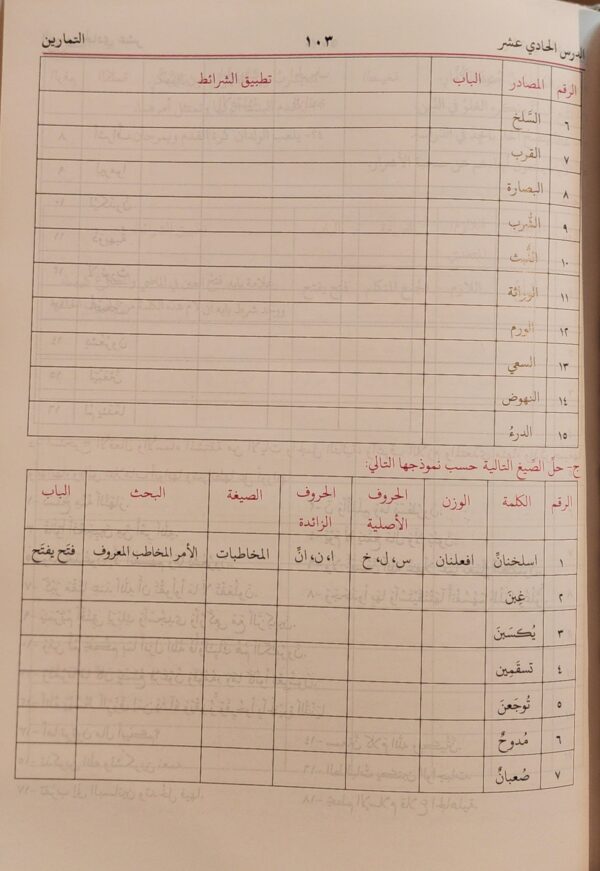 الدرس الحادي عشر ١٠٣ التمارين
الرقم المصادر الباب تطبيق الشرائط
٦ السَّلخ
٧ القرب
٨ البصارة
٩ الشُّرب
١٠ اللُّبث
١١ الوراثة
١٢ الورم
١٣ السعي
١٤ النهوض
١٥ الدرءُ
ج- حلِّ الصِّيغ التالية حسب نموذجها التالي:
الرقم الكلمة الوزن الحروف الأصلية الحروف الزائدة الصيغة البحث الباب
١ اسلخنانِّ افعلنان س، ل، خ ا، ن، انِّ المخاطبات الأمر المخاطب المعروف فتَح يفتَح
٢ غِبنَ
٣ يُكسَينَ
٤ تسقَمِين
٥ تُوجَعنَ
٦ مُدوحٌ
٧ صُعبانٌ